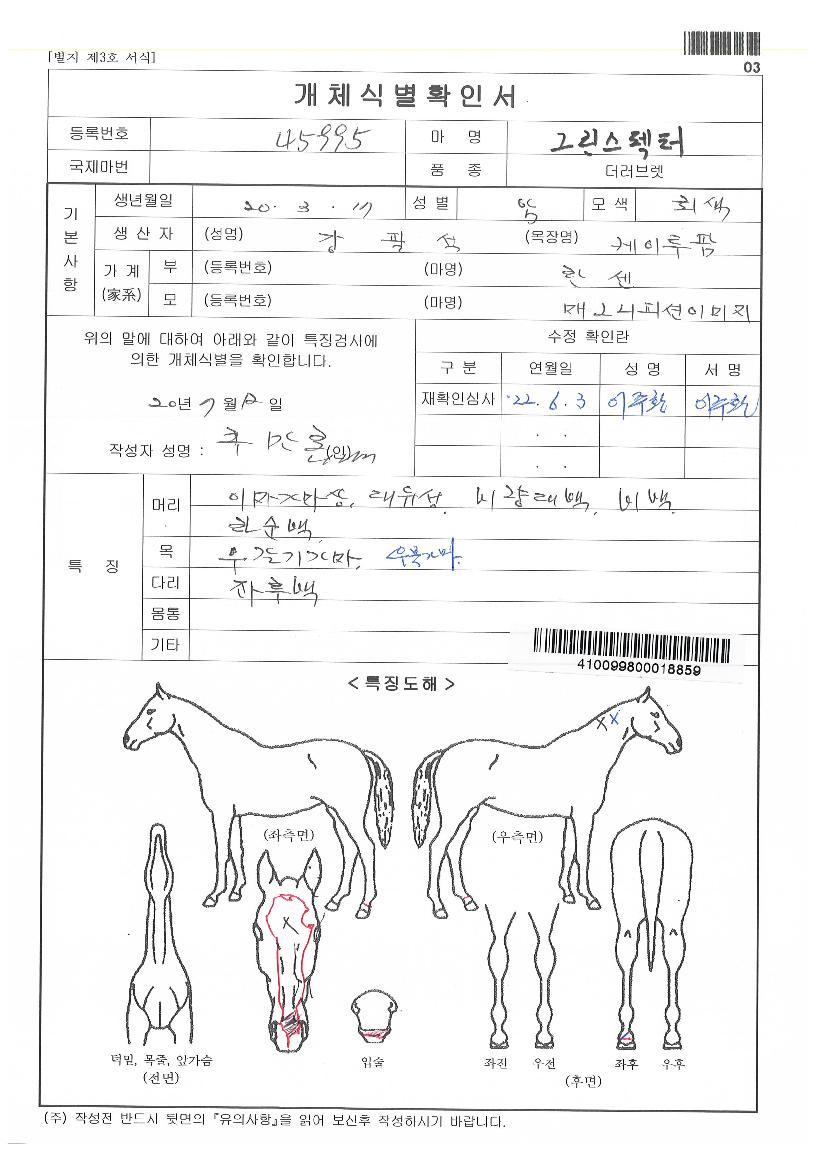 [별지 제3호 서식]
03
개체식별확인서
등록번호 45995 마 명 그린스펙터
국제마번 품 종 더러브렛
기본사항
생년월일 20. 3. 17 성별 암 모색 회색
생산자 (성명) 강필석 (목장명) 케이투팜
가계(家系) 부 (등록번호) (마명) 한센
모 (등록번호) (마명) 매그니피션이미지
위의 말에 대하여 아래와 같이 특징검사에
의한 개체식별을 확인합니다.
20년 7월 일
작성자 성명 : (인)
수정 확인란
구분 연월일 성명 서명
재확인심사 '22. 6. 3 이주환 이주환
. .
. .
특 징
머리 이마가마상, 대유성, 비량대백, 비백,
하순백
목 우갈기가마, 우목가마.
다리 좌후백
몸통
기타
410099800018859
<특징도해>
(좌측면) (우측면)
X X
X
턱밑, 목줄, 앞가슴
(전면)
입술
좌전 우전 좌후 우후
(후면)
(주) 작성전 반드시 뒷면의 『유의사항』을 읽어 보신후 작성하시기 바랍니다.